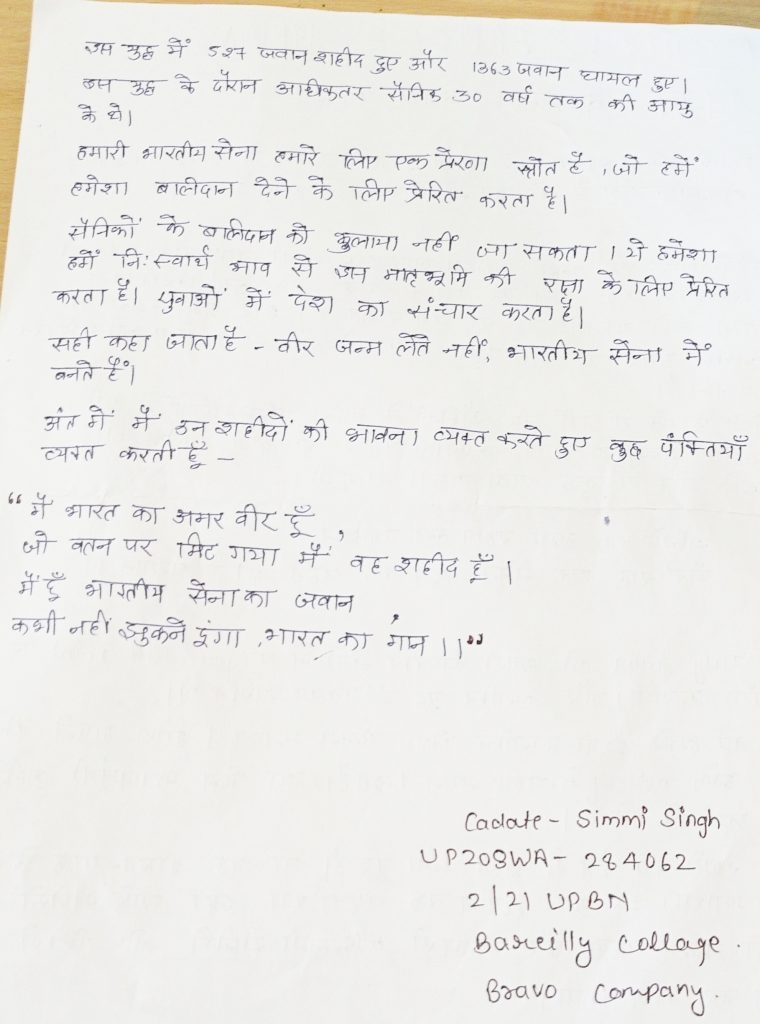 इस युद्ध में 527 जवान शहीद हुए और 1363 जवान घायल हुए।
इस युद्ध के दौरान अधिकतर सैनिक 30 वर्ष तक की आयु
के थे।
हमारी भारतीय सेना हमारे लिए एक प्रेरणा स्त्रोत है, जो हमें
हमेशा बालीदान देने के लिए प्रेरित करता है।
सैनिकों के बालीदान को भुलाया नहीं जा सकता । ये हमेशा
हमें निःस्वार्थ भाव से इस मातृभूमि की रक्षा के लिए प्रेरित
करता है। युवाओं में देश का संचार करता है।
सही कहा जाता है - वीर जन्म लेते नहीं, भारतीय सेना में
बनते हैं।
अंत में मैं उन शहीदों की भावना व्यक्त करते हुए कुछ पंक्तियाँ
व्यक्त करती हूँ -
"मैं भारत का अमर वीर हूँ,
जो वतन पर मिट गया मैं वह शहीद हूँ ।
मैं हूँ भारतीय सेना का जवान
कभी नहीं झुकने दूंगा, भारत का मान ।।"
Cadate - Simmi Singh
UP20SWA - 284062
2/21 UPBN
Bareilly Collage.
Bravo Company.